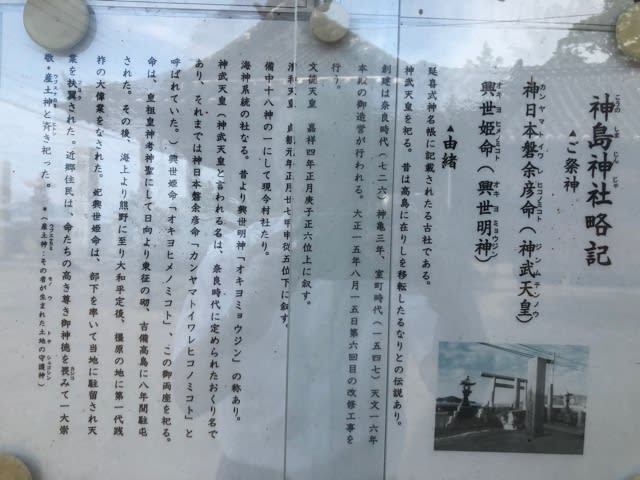 神島神社略記
こうのしまじんじゃ
▲ご祭神
神日本磐余彦命(神武天皇)
カンヤマトイワレヒコノミコト ジンムテンノウ
興世姫命(興世明神)
オキヨヒメノミコト オキヨミョウジン
▲由緒
延喜式神名帳に記載されたる古社である。
神武天皇を祀る。昔は高島に在りしを移転したるなりとの伝説あり。
創建は奈良時代(七二六)神亀三年、室町時代(一五四七)天文一六年
本殿の御造営が行われる。大正一五年八月一五日第六回目の改修工事を
行。
文徳天皇 嘉祥四年正月庚子正六位上に叙す。
清和天皇 貞観元年正月廿七年甲従五位下に叙す。
備中十八神の一にして現今村社たり。
海神系統の社なる。昔より興世明神「オキヨミョウジン」の称あり。
神武天皇(神武天皇と言われる名は、奈良時代に定められたおくり名で
あり、それまでは神日本磐余彦命「カンヤマトイワレヒコノミコト」と
呼ばれていた。)興世姫命「オキヨヒメノミコト」、この御両座を祀る。
命は、皇祖皇神考神聖にして日向より東征の砌、吉備高島に八年間駐屯
された。その後、海上より熊野に至り大和平定後、橿原の地に第一代践
祚の大偉業をなされた。妃興世姫命は、部下を率いて当地に駐留され天
業を扶翼された。近郷住民は、命たちの高き尊き御神徳を畏みて一大崇
敬・産土神と斉き祀った。 *(産土神:その者が生まれた土地の守護神)